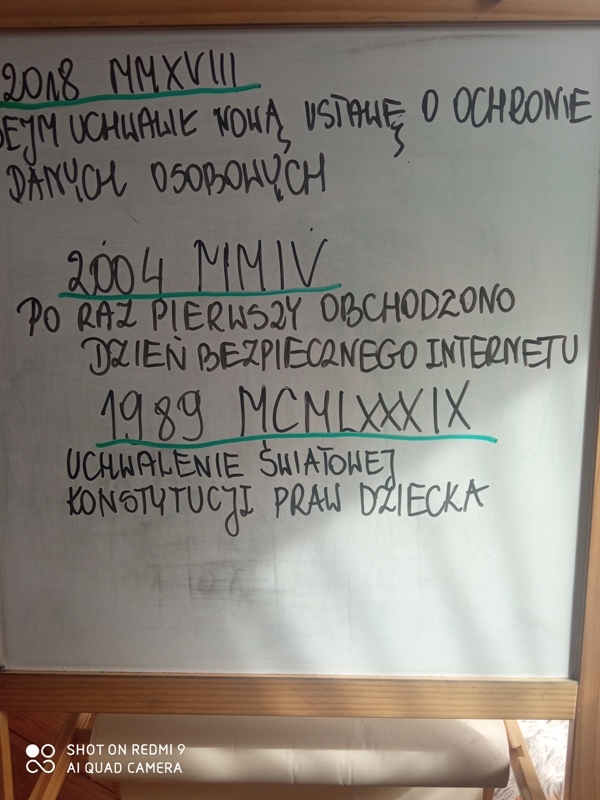 2018 MMXVIII
SEJM UCHWALIŁ NOWĄ USTAWĘ O OCHRONIE
DANYCH OSOBOWYCH
2004 MMIV
PO RAZ PIERWSZY OBCHODZONO
DZIEŃ BEZPIECZNEGO INTERNETU
1989 MCMLXXXIX
UCHWALENIE ŚWIATOWEJ
KONSTYTUCJI PRAW DZIECKA
SHOT ON REDMI 9
AI QUAD CAMERA